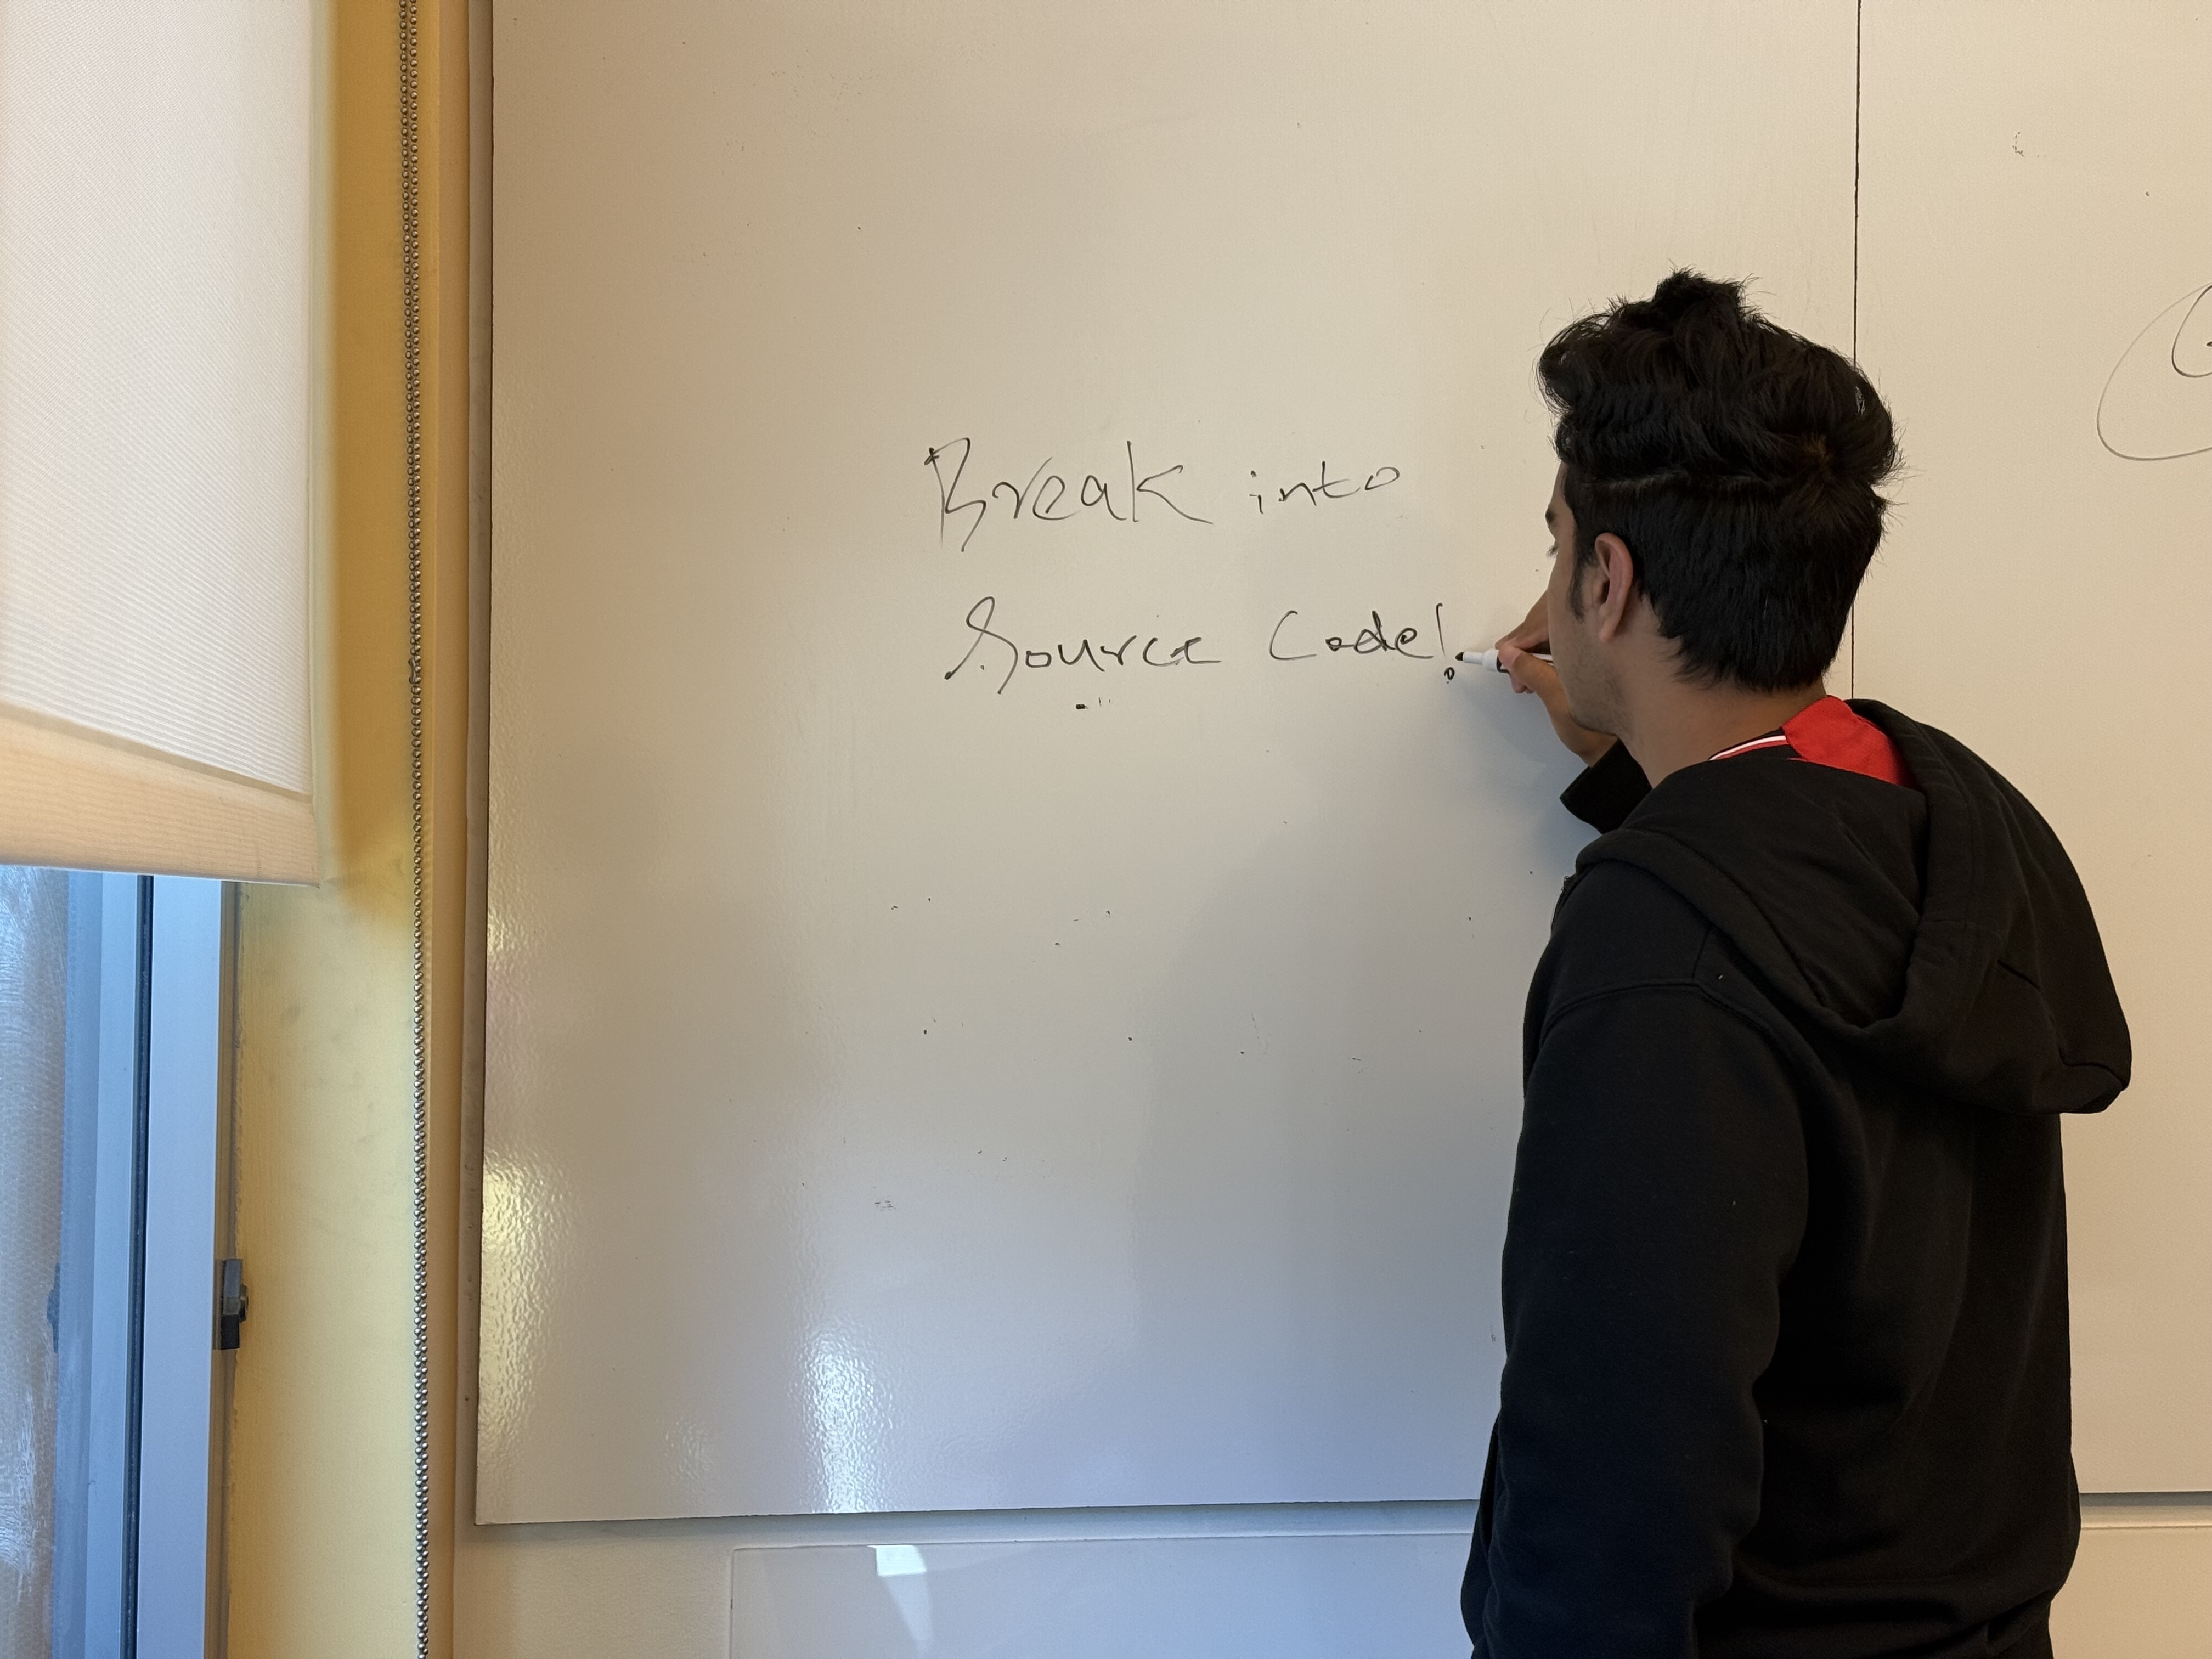 Break into
Source Code!